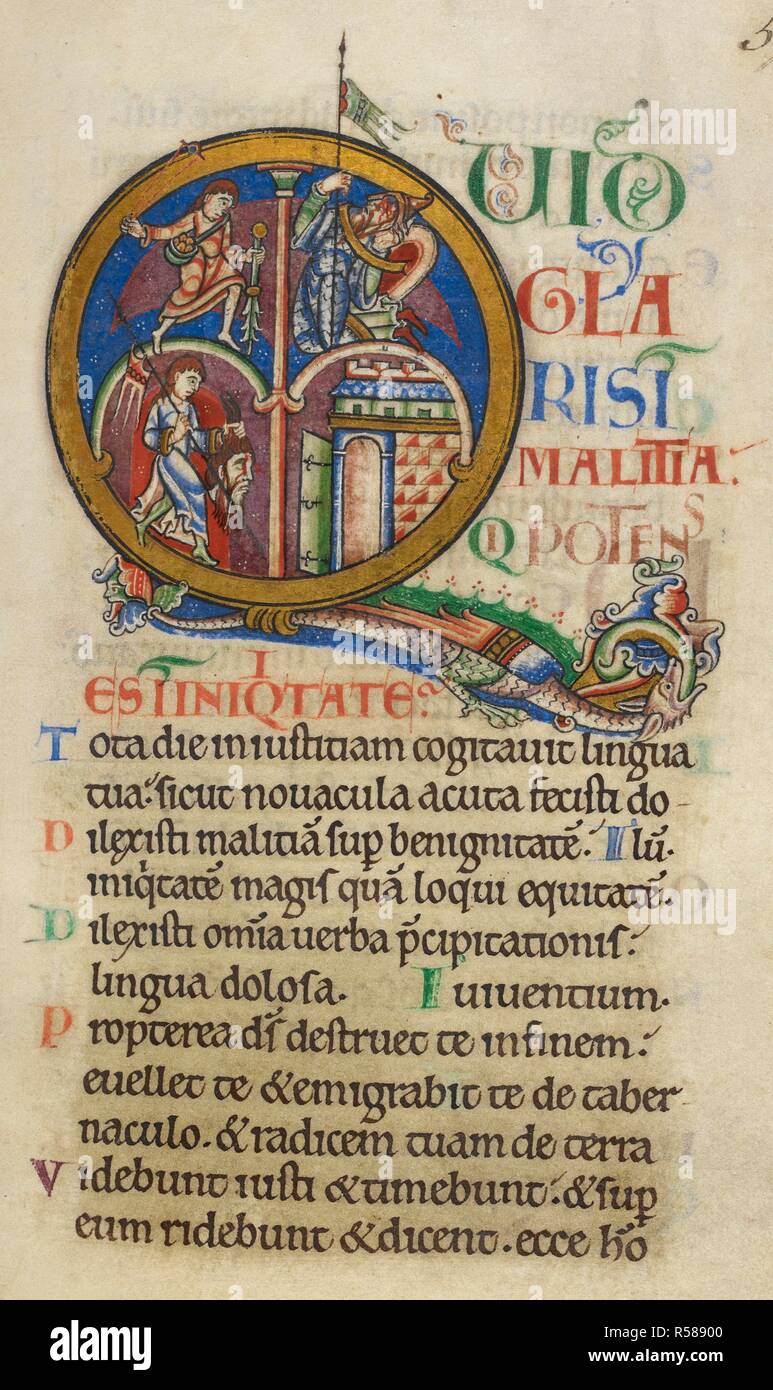 5
QUID
GLA
RIST̄
MALITIA.
QI POTENS
I
EST̄ INIQTATE.
Tota die iniustitiam cogitauit lingua
tua. sicut nouacula acuta fecisti do-
Dilexisti malitiā sup̄ benignitatē. I lū.
iniq̇tatē magis quā loqui equitatē.
Dilexisti om̄ia uerba p̄cipitationis.
lingua dolosa. I uiuentium.
Propterea ds̄ destruet te infinem.
euellet te & emigrabit te de taber-
naculo. & radicem tuam de terra
Videbunt iusti & timebunt. & sup̄
eum ridebunt & dicent. ecce ho̅
alamy
alamy
alamy
Image ID: R58900
www.alamy.com